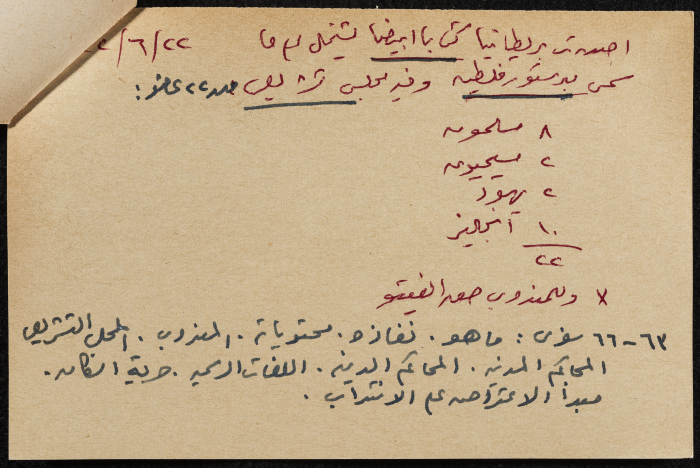 اصدرت بريطانيا كتابا ابيضا يشتمل على ما ٢٢/٦/
سمي بدستور فلسطين وفيه مجلس تشريعي من ٢٢ عضو :
٨ مسلمون
٢ مسيحيون
٢ يهود
١٠ انجليز
٢٢
x وللمندوب حق الفيتو
٦٣-٦٦ سفري : ما هو . نفاذه . محتوياته . المندوب . المجلس التشريعي
المحاكم المدنية . المحاكم الدينية . اللغات الرسمية . حرية السكان .
مبدأ الاعتراض على الانتداب .